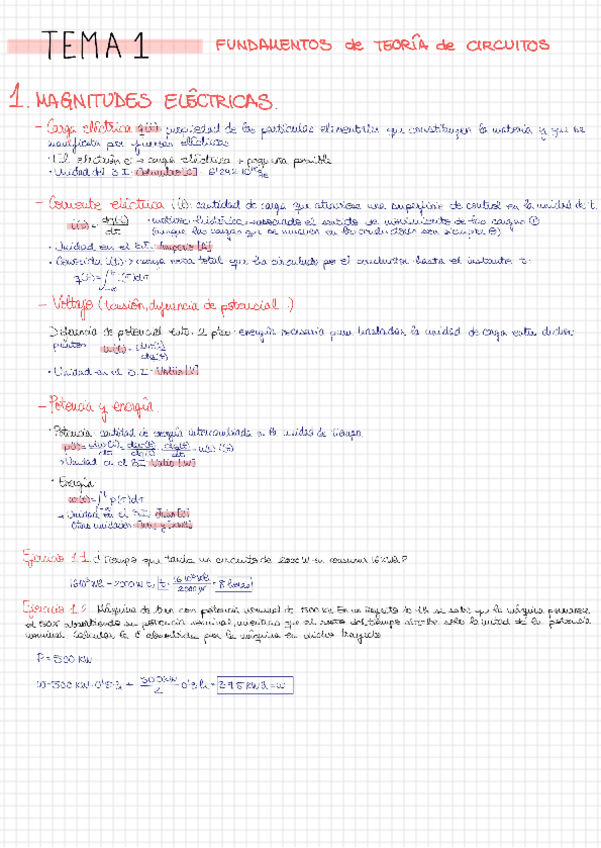 TEMA 1 FUNDAMENTOS de TEORÍA de CIRCUITOS
1. MAGNITUDES ELÉCTRICAS.
- Carga eléctrica q(t): propiedad de las partículas elementales que constituyen la materia y que se
manifiesta por fuerzas eléctricas
· El electrón e⁻ → carga eléctrica + pequeña posible
· Unidad del S.I.
- Corriente eléctrica i(t): cantidad de carga que atraviesa una superficie de control en la unidad de t.
i(t) = dq(t)/dt
sentido de movimiento de las cargas ⊕
(aunque las cargas que se mueven en los conductores son siempre ⊖)
· Unidad en el S.I. Amperio [A]
· Conocida i(t) → carga neta total que ha circulado por el conductor hasta el instante t:
q(t) = ∫ i(τ)dτ
- Voltaje (tensión, diferencia de potencial)
Diferencia de potencial entre 2 ptos: energía necesaria para trasladar la unidad de carga entre dichos
puntos
· Unidad en el S.I. Voltio [V]
- Potencia y energía.
· Potencia: cantidad de energía intercambiada en la unidad de tiempo
p(t) =
Unidad en el S.I. Vatio [W]
· Energía
w(t) = ∫ p(τ)dτ
→ Unidad en el S.I. Julio [J]
Otra unidad:
Ejercicio 1.1. ¿Tiempo que tarda un circuito de 2000 W en consumir 16 kWh?
t = = 8 horas
Ejercicio 1.2. Máquina de tren con potencia nominal de 500 kW. En un trayecto de 1h se sabe que la máquina permanece
el 50% absorbiendo su potencia nominal, mientras que el resto del tiempo absorbe solo la mitad de la potencia
nominal. Calcular la E absorbida por la máquina en dicho trayecto
P = 500 kW
w = 500 kW · 0'5 h + 500kW/2 · 0'5 h = 375 kWh = w